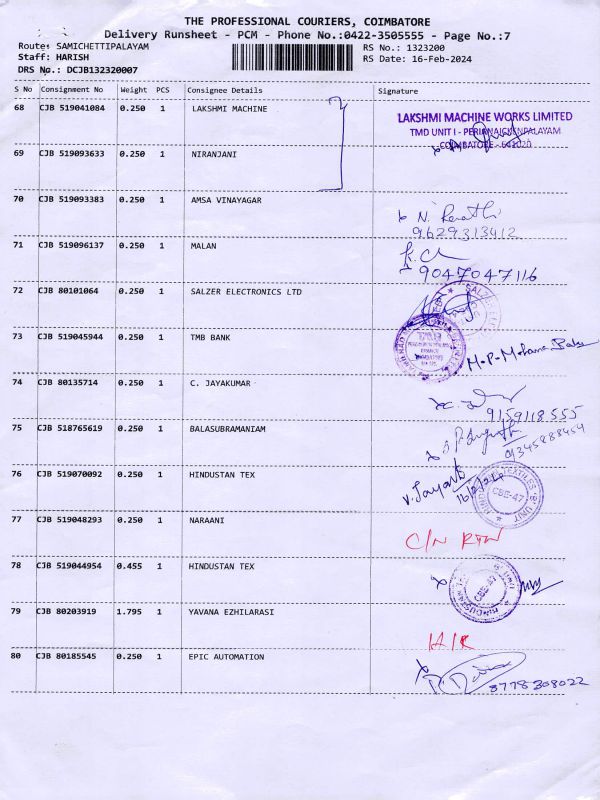 THE PROFESSIONAL COURIERS, COIMBATORE
Delivery Runsheet - PCM - Phone No.:0422-3505555 - Page No.:7
Route: SAMICHETTIPALAYAM
RS No.: 1323200
Staff: HARISH
RS Date: 16-Feb-2024
DRS No.: DCJB132320007
S No Consignment No Weight PCS Consignee Details Signature
68 CJB 519041084 0.250 1 LAKSHMI MACHINE
LAKSHMI MACHINE WORKS LIMITED
TMD UNIT I - PERIANAICKENPALAYAM
COIMBATORE - 641020
69 CJB 519093633 0.250 1 NIRANJANI
70 CJB 519093383 0.250 1 AMSA VINAYAGAR
9629313412
71 CJB 519096137 0.250 1 MALAN
9047047116
72 CJB 80101064 0.250 1 SALZER ELECTRONICS LTD
73 CJB 519045944 0.250 1 TMB BANK
M.P. Mohana Babu
74 CJB 80135714 0.250 1 C. JAYAKUMAR
9159118555
75 CJB 518765619 0.250 1 BALASUBRAMANIAM
9345888454
76 CJB 519070092 0.250 1 HINDUSTAN TEX
V. Jayanth
16/2/24
CBE-47
77 CJB 519048293 0.250 1 NARAANI
C/N RTN
78 CJB 519044954 0.455 1 HINDUSTAN TEX
CBE-47
79 CJB 80203919 1.795 1 YAVANA EZHILARASI
80 CJB 80185545 0.250 1 EPIC AUTOMATION
8778308022